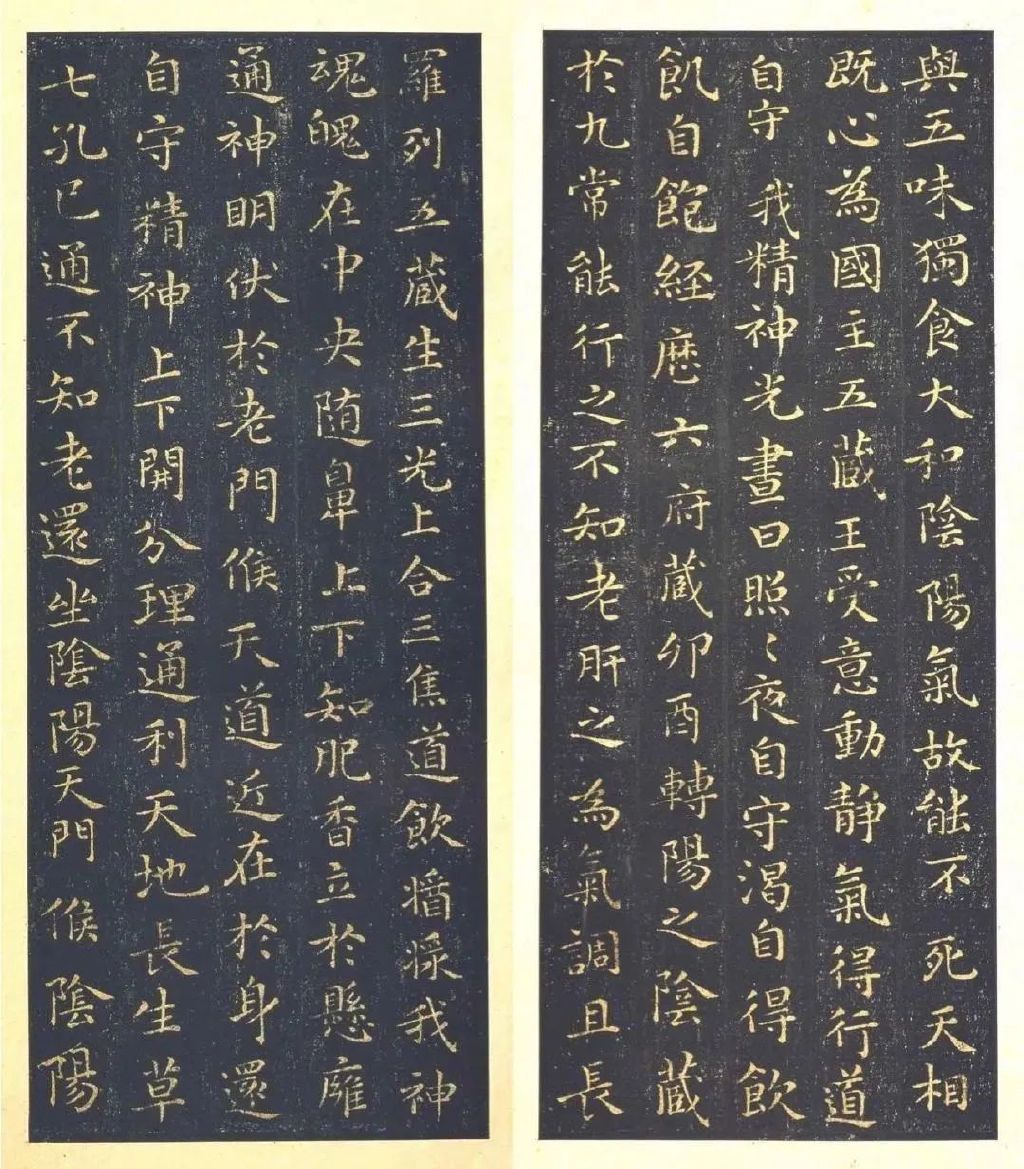 與五味獨食大和陰陽氣故能不死天相
既心為國主五藏王受意動静氣得行道
自守我精神光晝日照〻夜自守渴自得飲
飢自飽經歷六府藏卯酉轉陽之陰藏
於九常能行之不知老肝之為氣調且長
羅列五藏生三光上合三焦道飲我神
魂魄在中央随鼻上下知肥香立於懸雍
通神明伏於老門候天道近在於身還
自守精神上下開分理通利天地長生草
七孔已通不知老還坐陰陽天門候陰陽